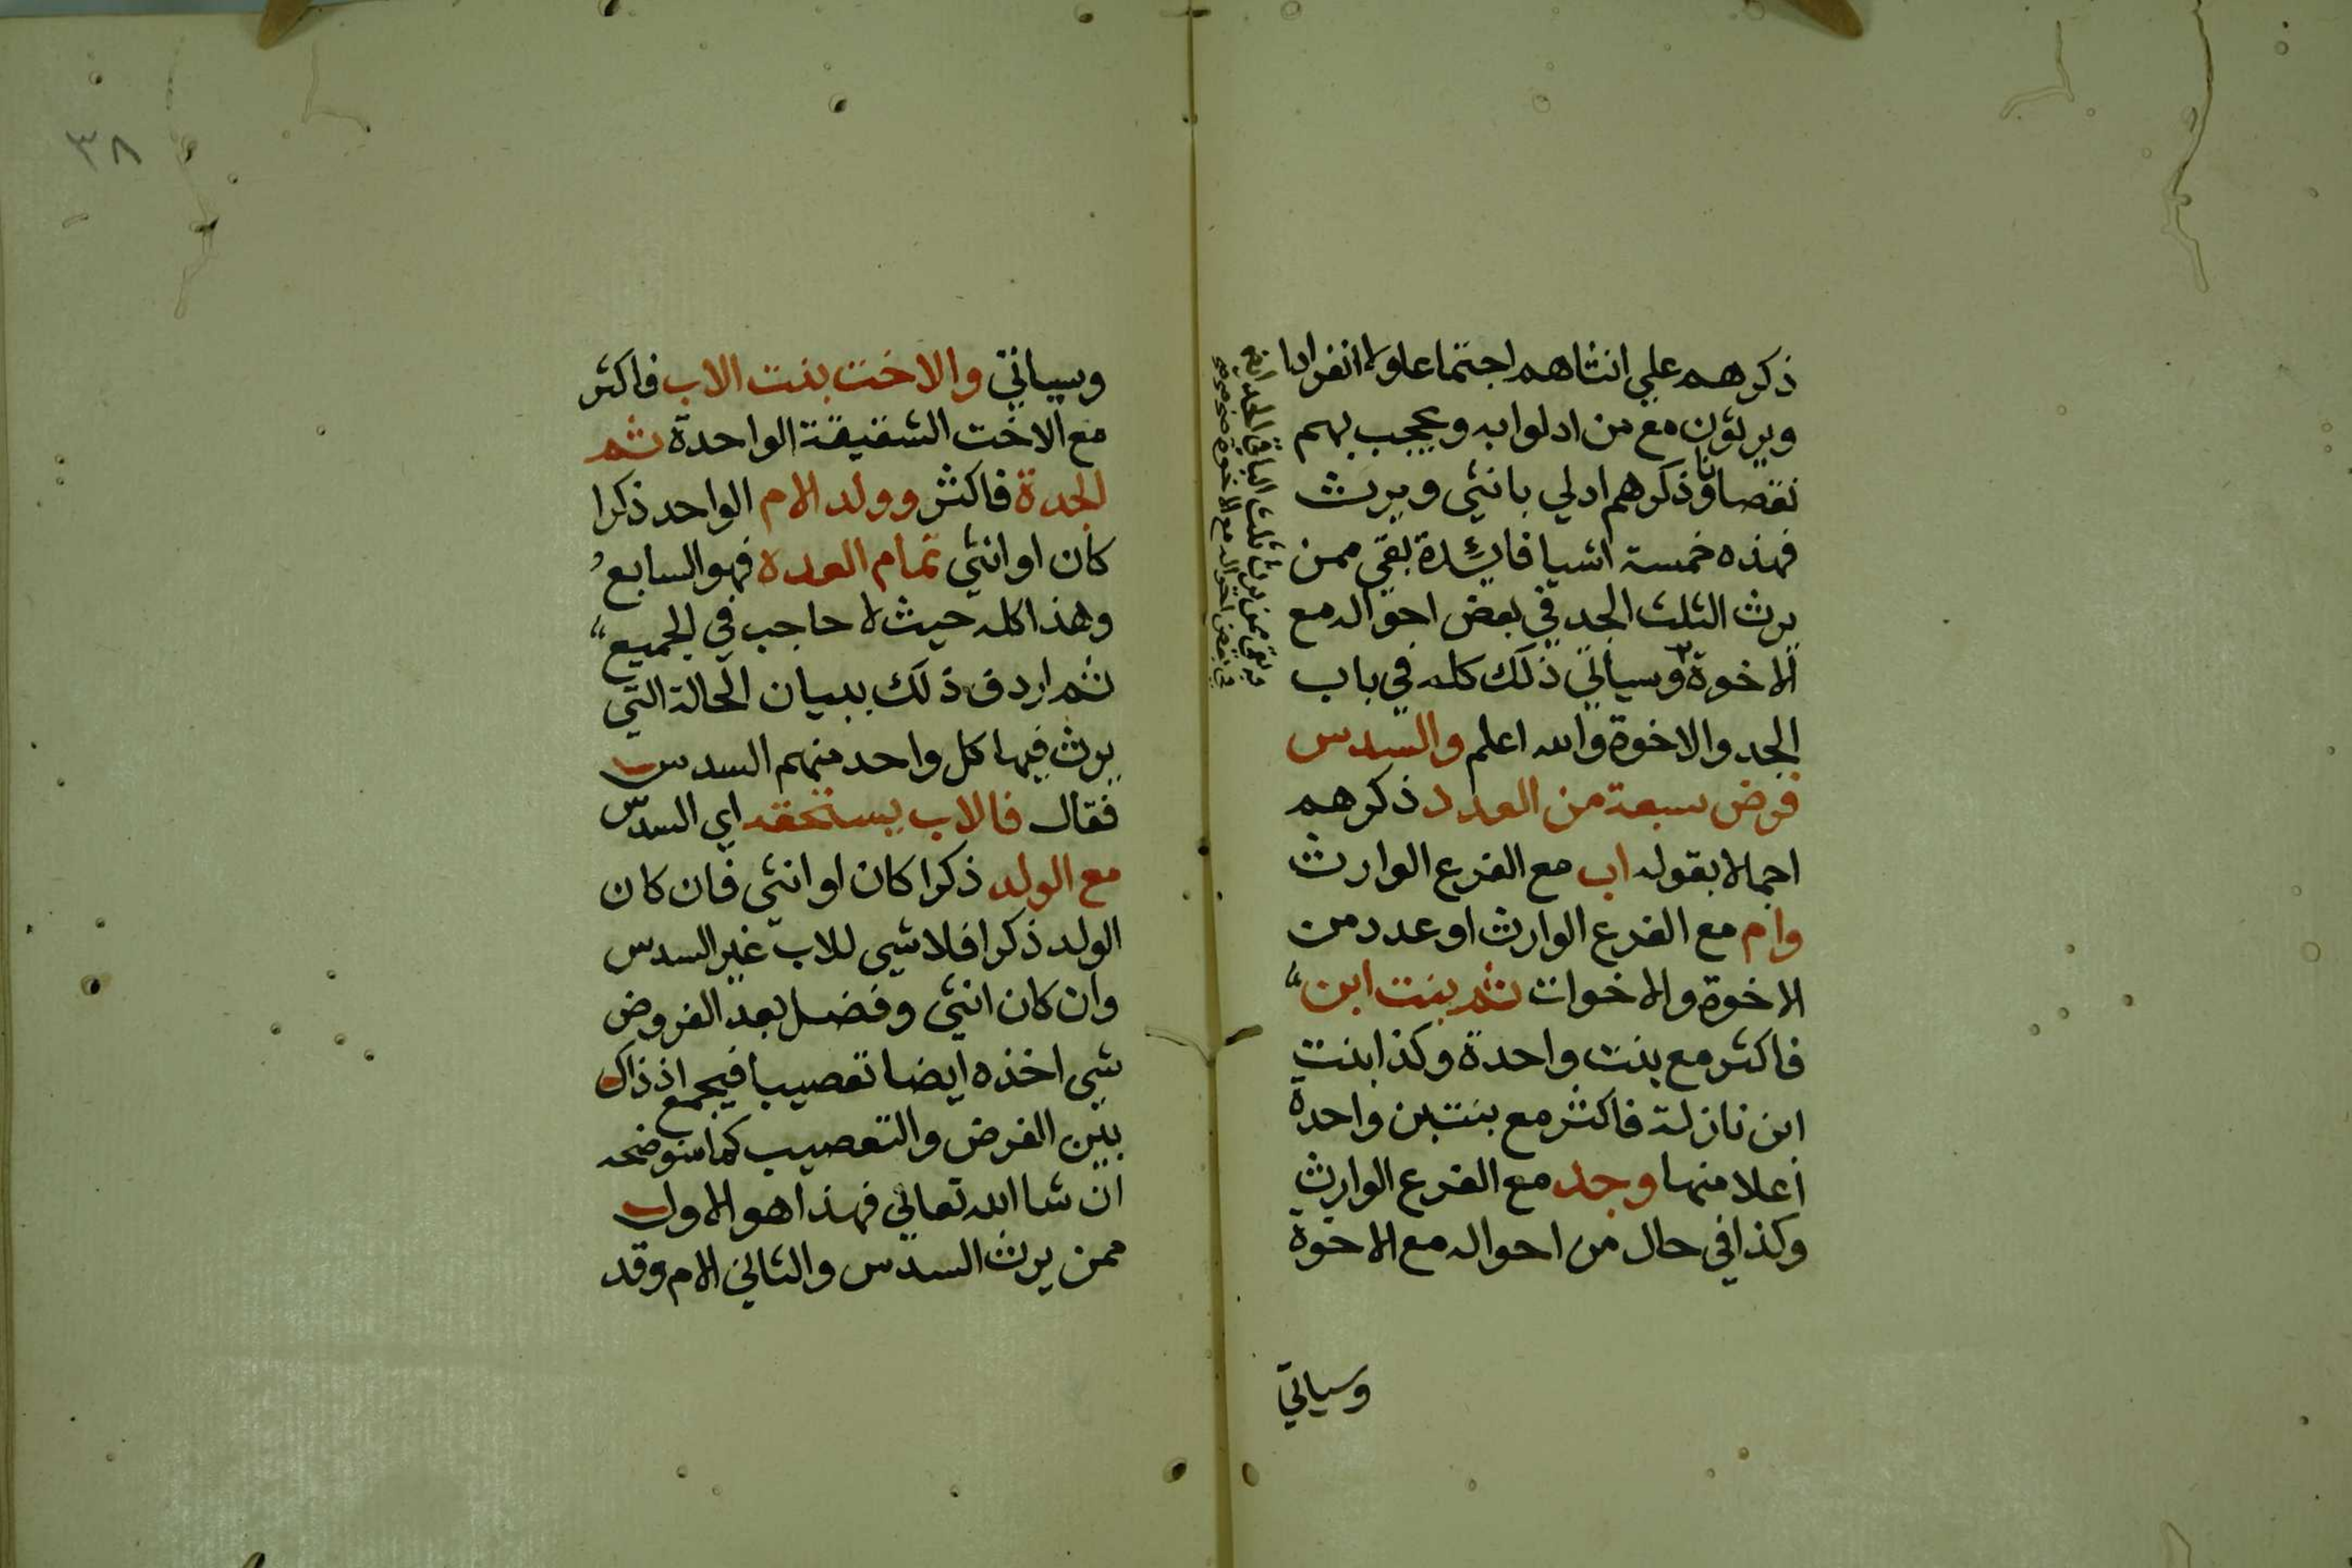 ذكرهم علي انثاهم اجتماعا ولا انفرادا
ويرثون مع من ادلوا به ويحجب بهم
نقصانا وذكرهم ادلي بانثي ويرث
فهذه خمسة اشيا فائدة بقي ممن
يرث الثلث الجد في بعض احواله مع
الاخوة وسياتي ذلك كله في باب
الجد والاخوة والله اعلم والسدس
فرض سبعة من العدد ذكرهم
اجمالا بقوله اب مع الفرع الوارث
وام مع الفرع الوارث او عدد من
الاخوة والاخوات ثم بنت ابن
فاكثر مع بنت واحدة وكذا بنت
ابن نازلة فاكثر مع بنت بن واحدة
اعلا منها وجد مع الفرع الوارث
وكذا في حال من احواله مع الاخوة
وسياتي
يرث ثلث الباقي الجد ايضا
في بعض احواله مع الاخوة
٣٨
وسياتي والاخت بنت الاب فاكثر
مع الاخت الشقيقة الواحدة ثم
الجدة فاكثر وولد الام الواحد ذكرا
كان او انثي تمام العدة فهو السابع
وهذا كله حيث لا حاجب في الجميع
ثم اردف ذلك ببيان الحالة التي
يرث فيها كل واحد منهم السدس
فقال فالاب يستحقه اي السدس
مع الولد ذكرا كان او انثي فان كان
الولد ذكرا فلا شي للاب غير السدس
وان كان انثي وفضل بعد الفروض
شي اخذه ايضا تعصيبا فيجمع اذ ذاك
بين الفرض والتعصيب كما سنوضحه
ان شا الله تعالي فهذا هو الاول
ممن يرث السدس والثاني الام وقد